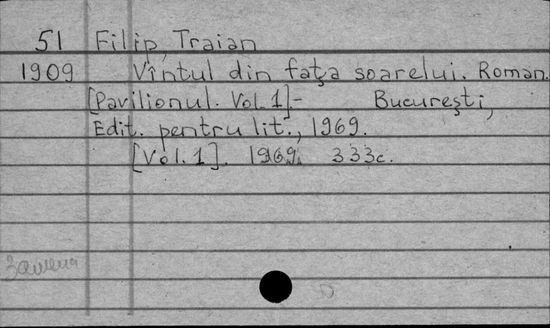 51 Filip, Traian
1909 Vîntul din faţa soarelui. Roman.
[Pavilionul. Vol. 1].- Bucureşti,
Edit. pentru lit., 1969.
[Vol. 1]. 1969. 333c.
Замена